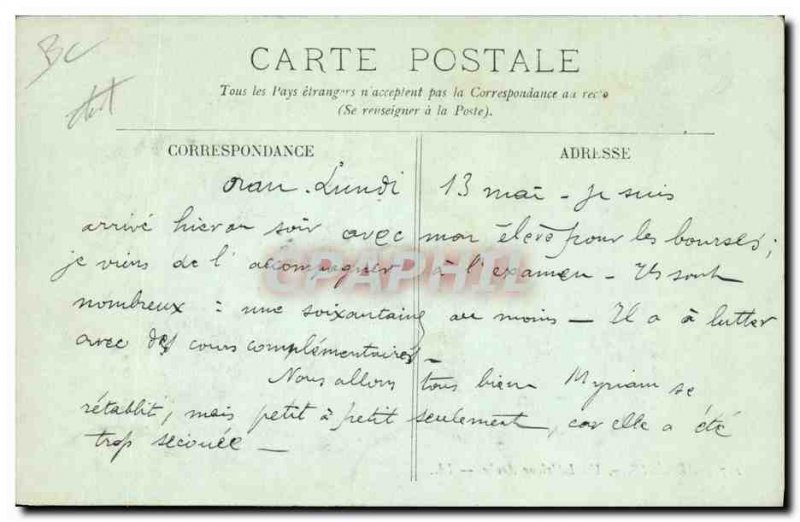 BC
CARTE POSTALE
Tous les Pays étrangers n'acceptent pas la Correspondance au recto
(Se renseigner à la Poste).
CORRESPONDANCE
ADRESSE
Oran. Lundi 13 mai - je suis
arrivé hier au soir avec mon élève pour les bourses;
je viens de l'accompagner à l'examen - Ils sont
nombreux : une soixantaine au moins - Il a à lutter
avec des cours complémentaires -
Nous allons tous bien Myriam se
rétablit, mais petit à petit seulement, car elle a été
trop secouée -
CPAPHIL